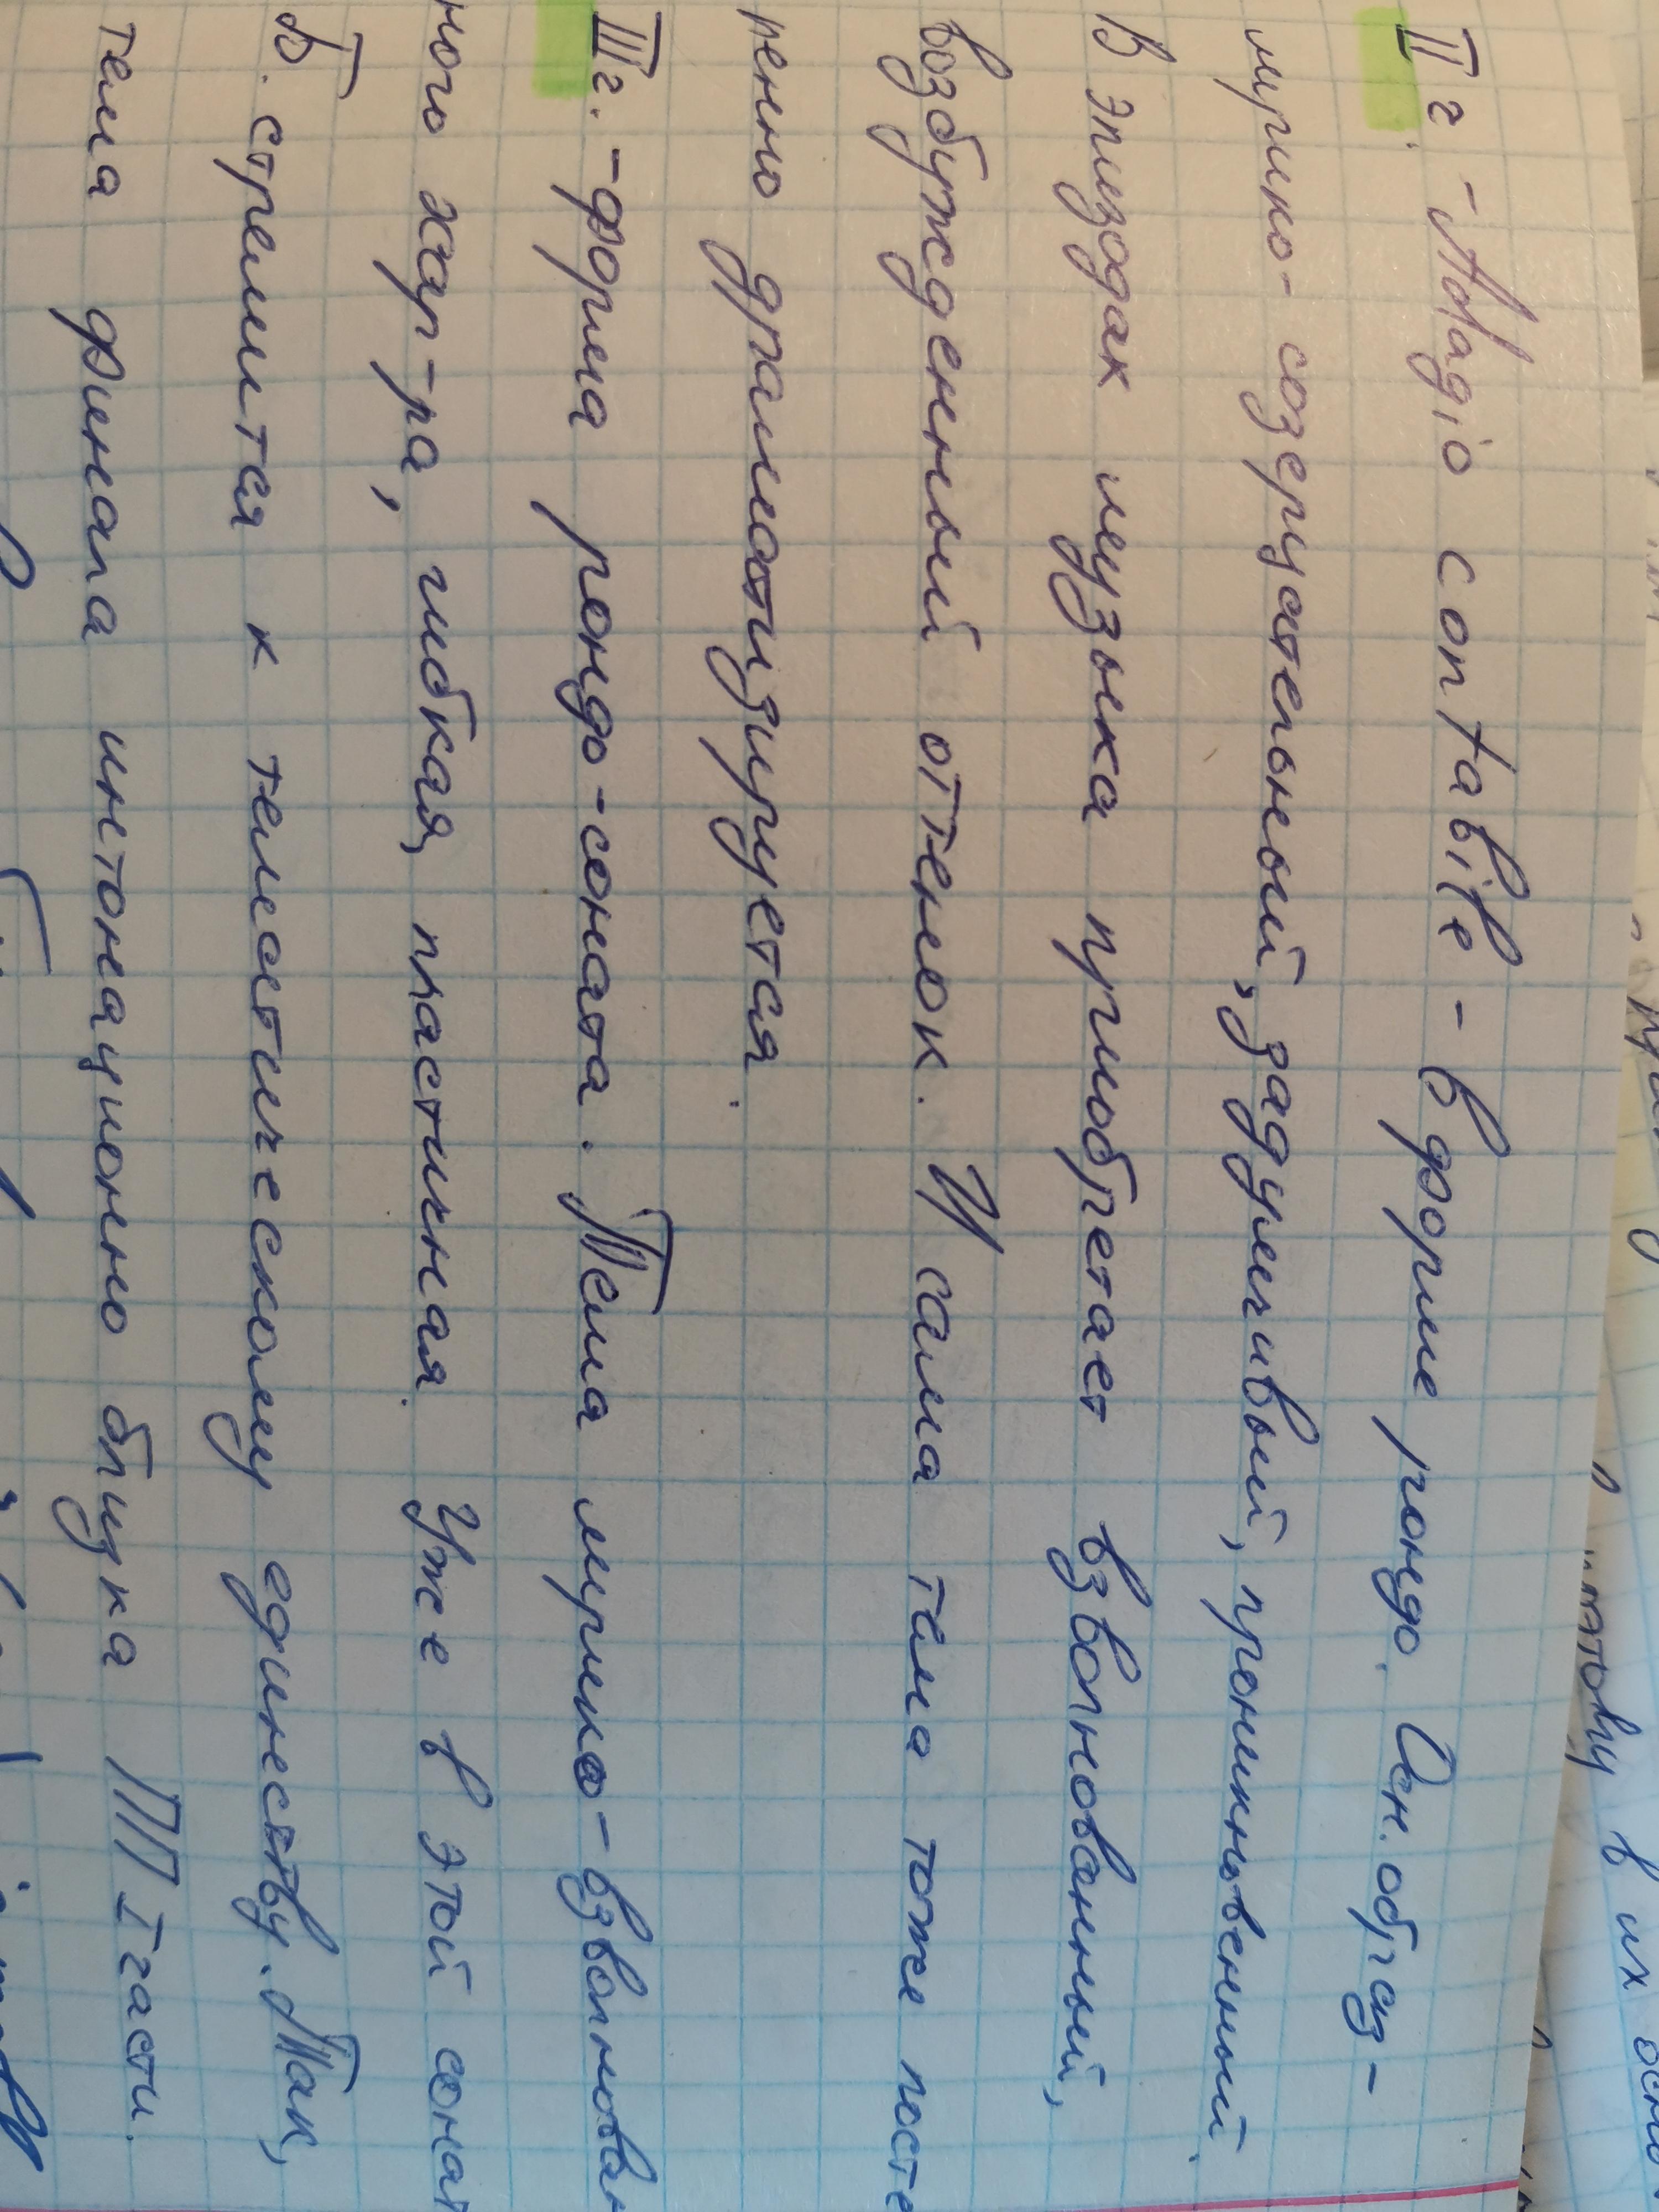 II ч. - Adagio contabile - в форме рондо. Осн. образ -
лирико-созерцательный, задумчивый, проникновенный.
В эпизодах музыка приобретает взволнованный,
возбужденный оттенок. И сама тема тоже посте
пенно драматизируется.
III ч. - форма рондо-соната. Тема лирико-взволнован
ного хар-ра, гибкая, пластичная. Уже в этой сонат
Б. стремится к тематическому единству. Так,
тема финала интонационно близка ПП I части.
в их осно